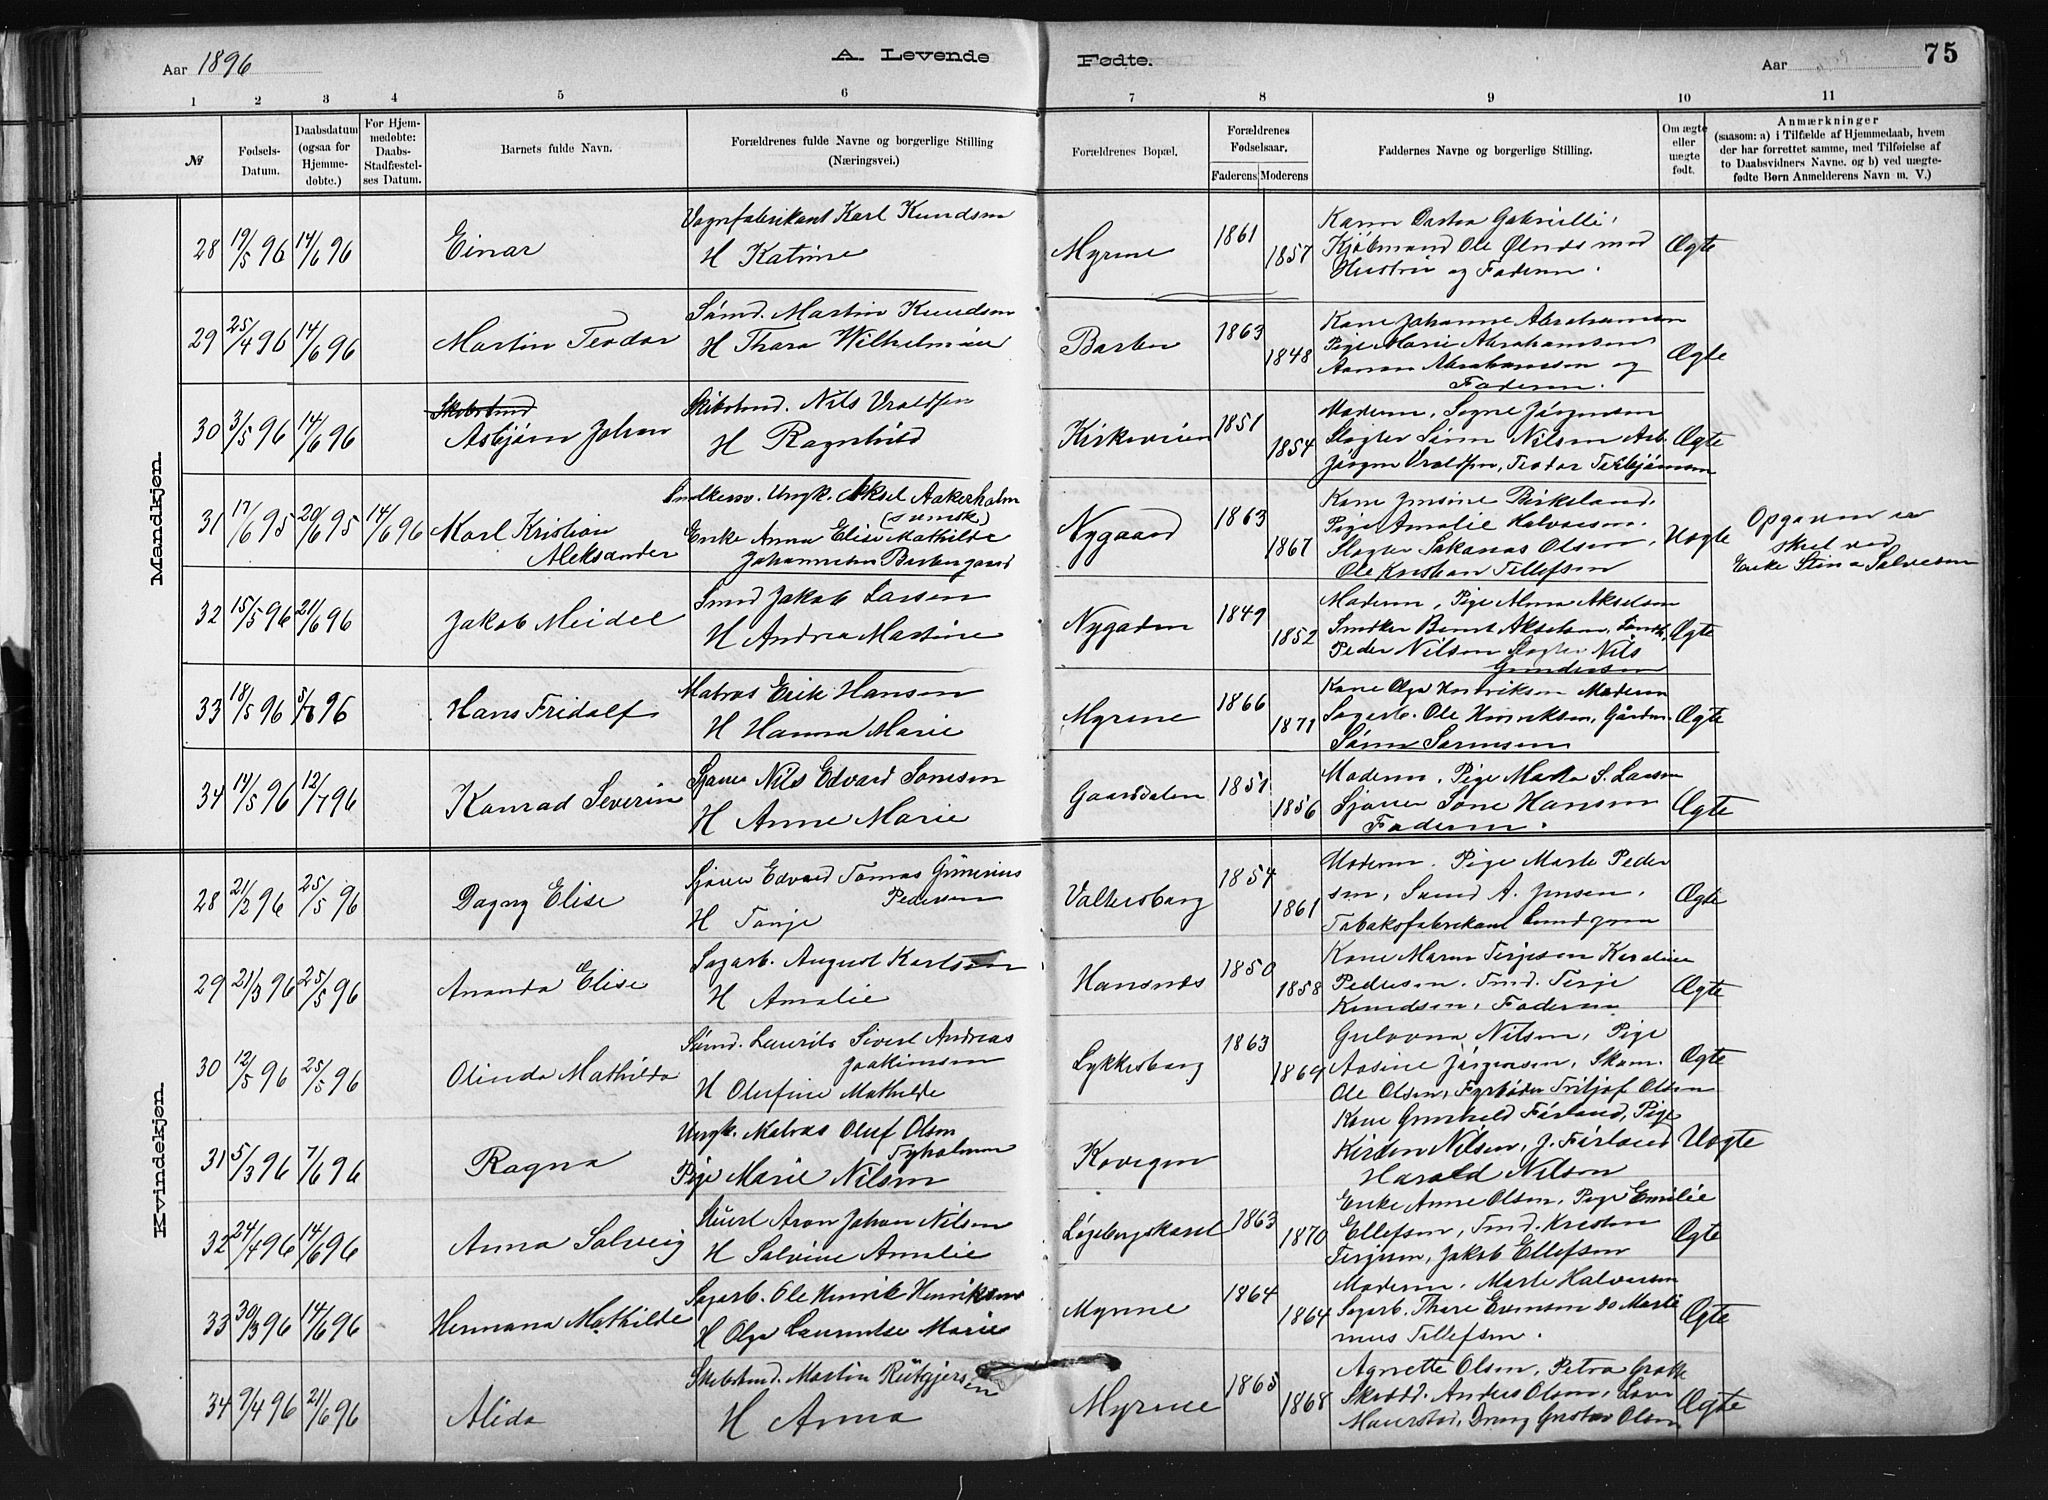 Aar 1896
A. Levende Fødte.
Aar
75
1 2 3 4 5 6 7 8 9 10 11
№
Fødsels-
Datum.
Daabsdatum
(ogsaa for
Hjemme-
døbte.)
For Hjem-
medøbte:
Daabs-
Stadfæstel-
ses Datum.
Barnets fulde Navn.
Forældrenes fulde Navne og borgerlige Stilling
(Næringsvei.)
Forældrenes Bopæl.
Forældrenes
Fødselsaar.
Faderens Moderens
Faddernes Navne og borgerlige Stilling.
Om ægte
eller
uægte
født.
Anmærkninger
(saasom: a) i Tilfælde af Hjemmedaab, hvem
der har forrettet samme, med Tilføielse af
to Daabsvidners Navne. og b) ved uægte-
fødte Børn Anmelderens Navn m. V.)
Mandkjøn.
28 19/5 96 14/6 96 Einar
Vognfabrikant Karl Knudsen
H Katrine
Myrene 1861 1857
Gabrielli,
Kjøbmand Ole med
Hustru og Faderen.
Ægte
29 25/4 96 14/6 96 Martin Teodor
Sømd. Martin Knudsen
H Thara Wilhelmine
Barbu 1863 1848
Kone Johanne Abrahamsen
Pige Marie Abrahamsen
Aanon Abrahamsen og
Faderen.
Ægte
30 3/5 96 14/6 96
Asbjørn Johan
Skibstmd. Nils Vraldsen
H Ragnhild
Kirkeveien 1851 1854
Moderen, Signe Jørgensen
Slagter Søren Nilsen Arb.
Jørgen Vraldsen, Teodor Terkjørnsen
Ægte
31 17/6 95 20/6 95 14/6 96
Karl Kristian
Aleksander
Ungk. Aksel Aakerholm
(svensk)
Enke Anna Elise Mathilde
Nygaard 1863 1867
Kone Jensine Birkeland,
Pige Amalie Halvorsen.
Slagter Sakarias Olsen,
Ole Kristian Tellefsen
Uægte
Opgaven er
skeet ved
Enke Stina Salvesen
32 15/5 96 21/6 96 Jakob Meidel
Smed Jakob Larsen
H Andrea Martine
Nygaden 1849 1852
Moderen, Pige Alma Akselsen
Snedker Bernt Akselsen,
Peder Nilsen Slagter Nils
Gundersen
Ægte
33 18/5 96 5/7 96 Hans Fridolf
Matros Erik Hansen
H Hanna Marie
Myrene 1866 1871
Kone Olga Henriksen Moderen
Sagarb. Ole Henriksen, Gårdm.
Søren Sørensen
Ægte
34 14/5 96 12/7 96 Konrad Severin
Sjauer Nils Edvard Sørensen
H Anne Marie
Gaarddalen 1851 1856
Moderen, Pige Marta S. Larsen
Sjauer Søne Hansen
Faderen.
Ægte
Kvindekjøn.
28 21/2 96 25/5 96 Dagny Elise
Sjauer Edvard Tomas Grinerius
Pedersen
H Tonje
Valtersborg 1854 1861
Moderen, Pige Marte Peder
sen, Smed A. Jensen,
Tobaksfabrikant Lundgren
Ægte
29 21/3 96 25/5 96 Ananda Elise
Sagarb. August Karlsson
H Amalie
Hansnæs 1850 1858
Kone Maren Terjesen Karoline
Pedersen. Tmd. Terje
Knudsen, Faderen
Ægte
30 12/5 96 25/5 96 Olinda Mathilda
Sømd. Laurits Sivert Andreas
Joakimsen
H Olufine Mathilde
Lykkesborg 1863 1869
Gulovna Nilsen, Pige
Aasine Jørgensen, Skom.
Ole Olsen, Fyrbøder Fritjof Olsen
Ægte
31 5/3 96 7/6 96 Ragna
Ungk. Matros Oluf Olsen
Tyholmen
Pige Marie Nilsen
Kovegen
Kone Gunhild Førland, Pige
Kirsten Nilsen, J. Førland
Harald Nilsen
Uægte
32 24/4 96 14/6 96 Anna Solveig
Stuert Aron Johan Nilsen
H Salvine Amalie
1863 1870
Enke Anne Olsen, Pige Emilie
Ellefsen, Tmd. Kresten
Terjesen, Jakob Ellefsen
Ægte
33 30/3 96 14/6 96 Hermana Mathilde
Sagarb. Ole Henrik Henriksen
H Olga Laurentse Marie
Myrene 1864 1864
Moderen, Marte Halvorsen
Sagarb. Thore Evensen do Marti
nius Tellefsen.
Ægte
34 9/4 96 21/6 96 Alida
Skibstmd. Martin Rütgjersen
H Anna
Myrene 1865 1868
Agnette Olsen, Petra Grotte
Skrædd. Anders Olsen,
Dreng Gustav Olsen
Ægte